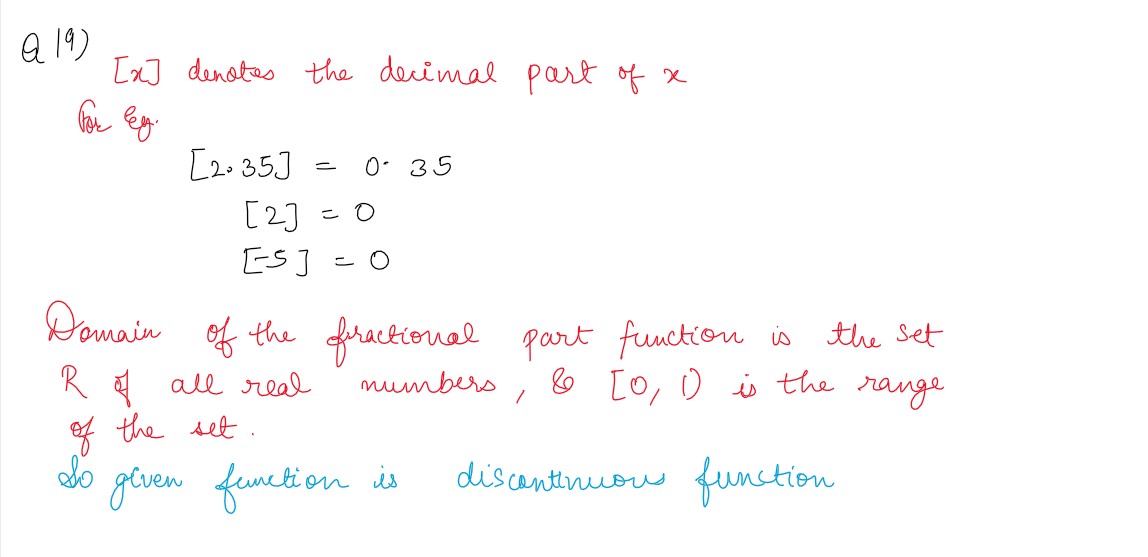 Q 19)
[x] denotes the decimal part of x
For Eg.
[2.35] = 0.35
[2] = 0
[-5] = 0
Domain of the fractional part function is the set
R of all real numbers, & [0, 1) is the range
of the set.
So given function is discontinuous function